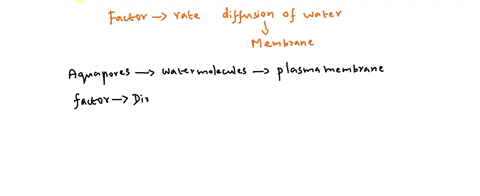 Factor → rate diffusion of water
↓
Membrane
Aquapores → watermolecules → plasmamembrane
factor → Dir